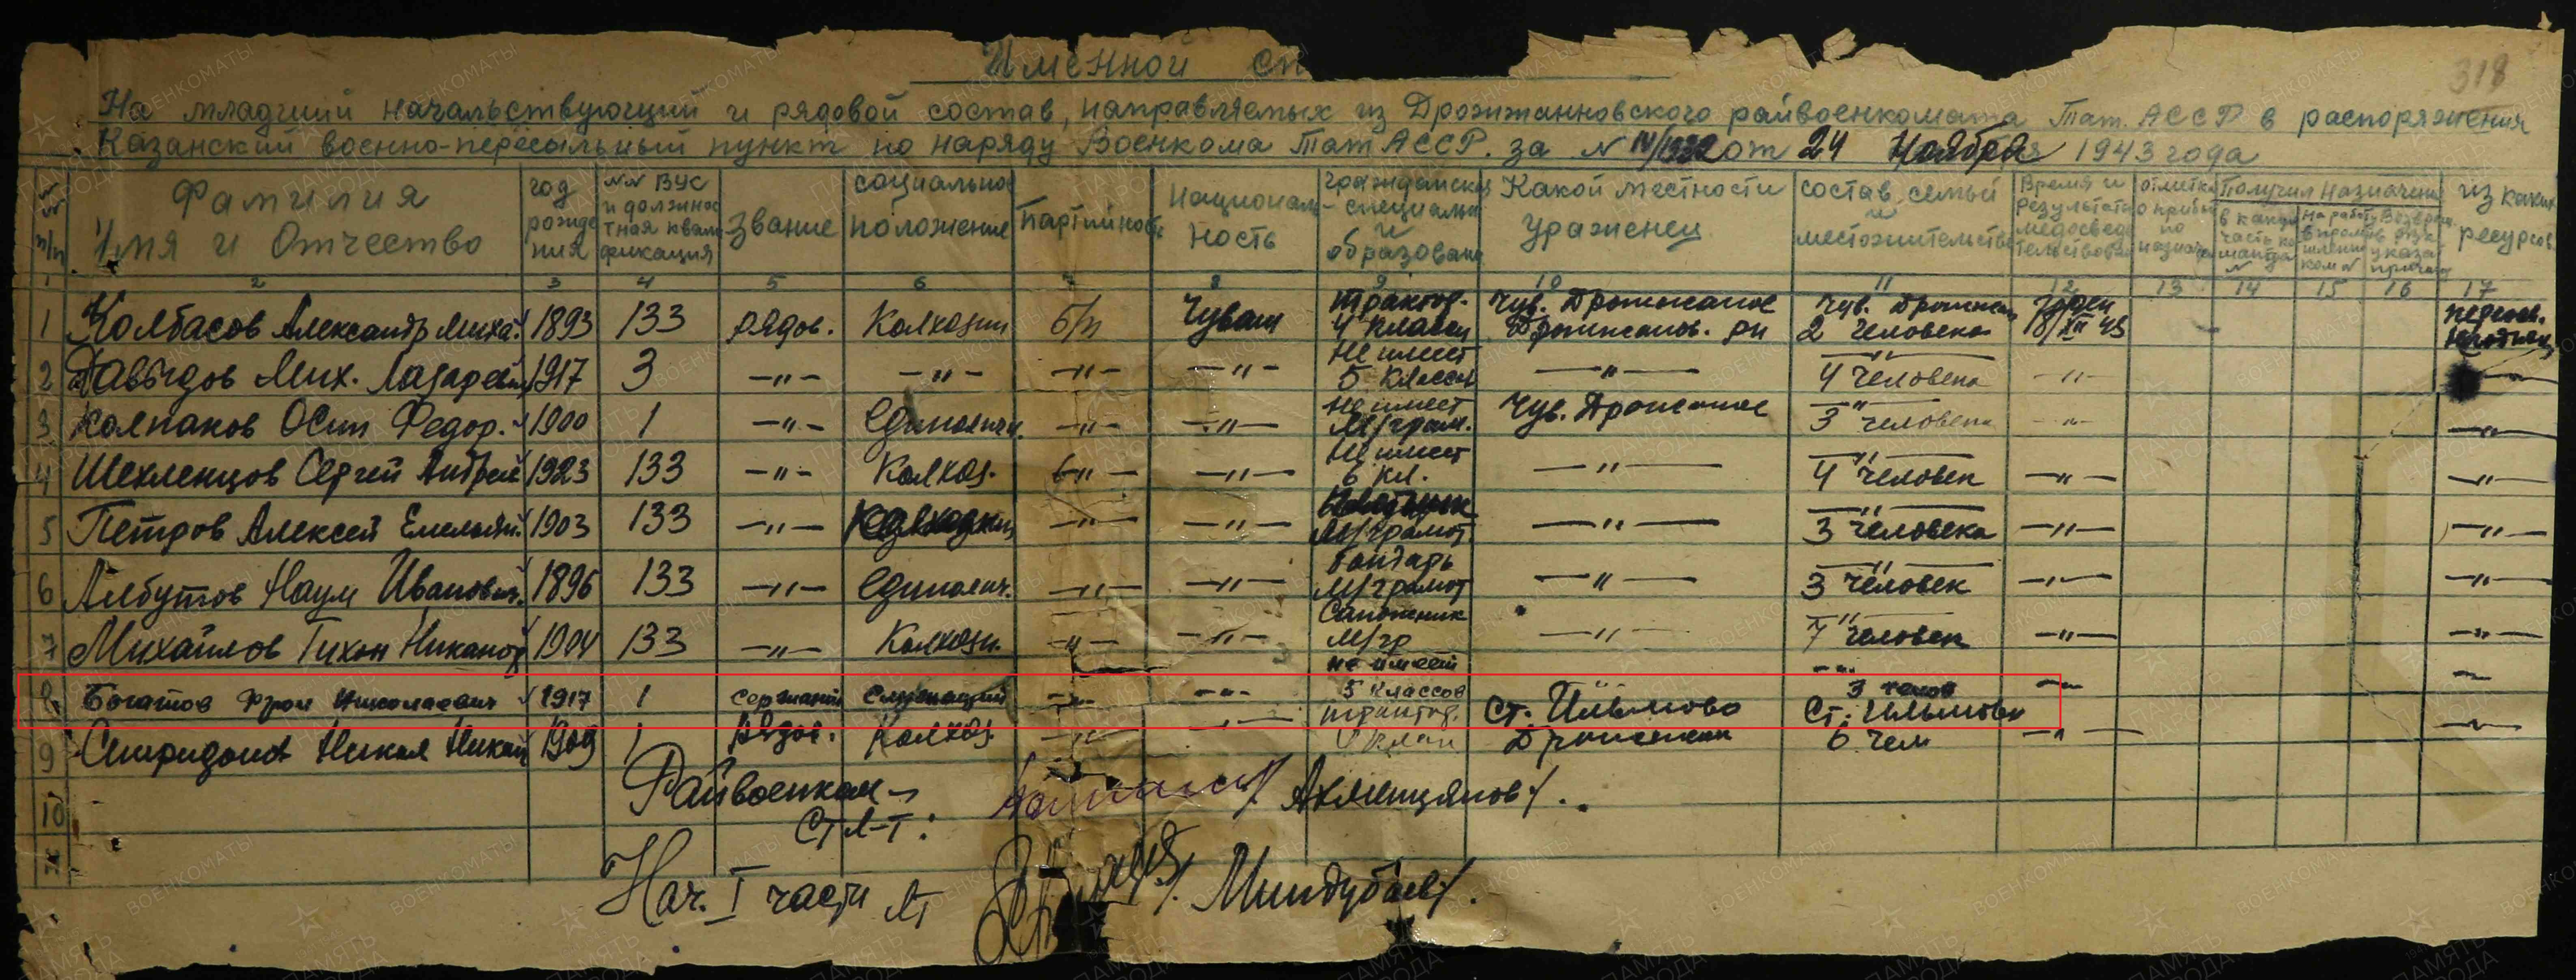 Именной сп
318
На младший начальствующий и рядовой состав, направляемых из Дрожжановского райвоенкомата Тат. АССР в распоряжения
Казанский военно-пересыльный пункт по наряду Военкома ТатАССР. за N от 24 Ноября 1943 года
NN п/п Фамилия Имя и Отчество год рождения NN ВУС и должностная квалификация Звание социальное положение Партийность Национальность гражданская специальн и образован Какой местности ураженец состав семьи и местожительства Время и результаты медосвидетельствован отметка о прибы по назнач Получил назначени из каких ресурсов
1 2 3 4 5 6 7 8 9 10 11 12 13 14 15 16 17
1 Колбасов Александр Михай. 1893 133 рядов. Колхозни б/п Чуваш трактор. 4 класса Чув. Дрожжаное Дрожжанов. рн Чув. Дрожжан 2 человека Годен 18/XII 43
2 Давыдов Мих. Лазаревич 1917 3 —"— —"— —"— —"— Не имеет 5 классов —"— —"— 4 человека —"— —"—
3 Колпаков Осип Федор. 1900 1 —"— Единолич. —"— —"— Не имеет М/грам. Чув. Дрожжаное —"— 3 человека —"— —"—
4 Шехленцов Сергей Андрей 1923 133 —"— Колхоз. б—"— —"— Не имеет 6 кл. —"— —"— 4 человек —"— —"—
5 Петров Алексей Емельян. 1903 133 —"— Колхозник —"— —"— М/грамот —"— —"— 3 человека —"— —"—
6 Албутов Наум Иванович. 1896 133 —"— Единолич. —"— —"— бондарь М/грамот —"— —"— 3 человек —"— —"—
7 Михайлов Тихон Никанор 1904 133 —"— Колхозн. —"— —"— Сапожник М/гр —"— —"— 7 человек —"— —"—
8 Богатов Фрол Николаевич 1917 1 сержант служащий —"— —"— не имеет 5 классов Ст. Ильмово —"— 3 челов —"— —"—
9 Спиридонов Никол Никол 1909 1 Рядов. Колхоз. —"— —"— трактор. 4 клас Дрожжан Ст. Ильмово 6 чел —"— —"—
10
11
Райвоенком
Ст л-т: /Ахметцянов/.
Нач. I части лт /Миндубаев/.